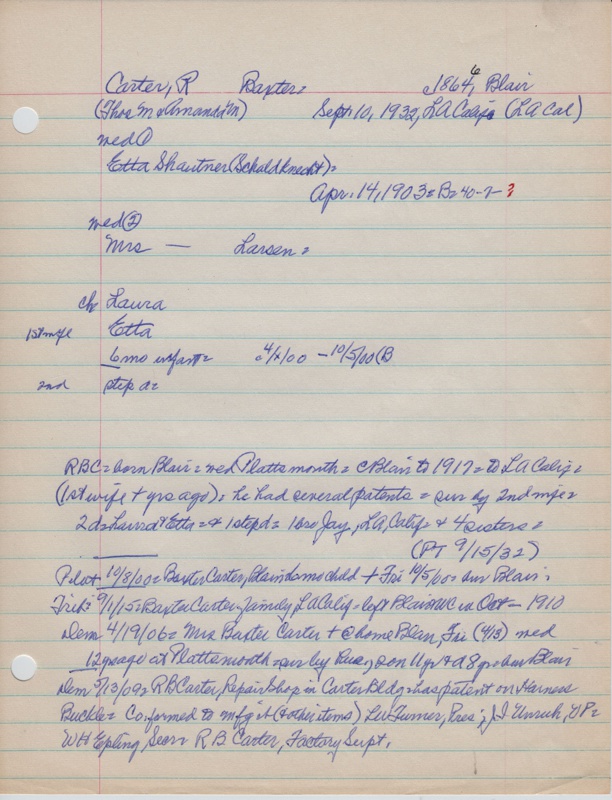 Carter, R Baxter = c1864 6 Blair
(Thos M & Amanda M) Sept. 10, 1932, LA Calif (LA Cal)
wed ①
Etta Shautner (Schaldknecht) =
Apr. 14, 1903 = B = 40-7- ?
wed ②
Mrs — Larsen =
ch Laura
1st wife Etta
6 mo infant = 4/x/00 - 10/5/00 (B
2nd step d =
RBC = born Blair = wed Plattsmouth = c Blair to 1917 = to LA Calif =
(1st wife + yrs ago) = he had several patents = sur by 2nd wife =
2 d = Laura & Etta = & 1 step d = 1 bro Jay, LA, Calif = & 4 sisters =
(PT 9/15/32)
Pilot 10/8/00 = Baxter Carter, Blair, 6 mo child + Fri 10/5/00 = bur Blair =
Trib = 9/1/15 = Baxter Carter family, LA Calif = left Blair in Oct - 1910
Dem 4/19/06 = Mrs Baxter Carter + @ home Blair, Fri (4/13) wed
12 yrs ago at Plattsmouth = sur by hus, son 11 yr & d 8 yr = bur Blair
Dem 5/13/09 = RB Carter, Repair Shop in Carter Bldg = has patent on Harness
Buckle = Co. formed to mfg it (& other items) LW Turner, Pres; J I Unruh, VP =
WH Epling, Sec = R B Carter, Factory Supt.